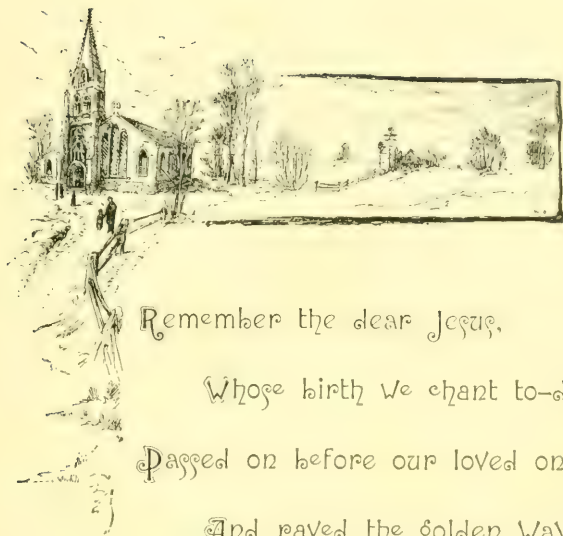 Remember the dear Jesus,
Whose birth we chant to-d
Passed on before our loved on
And paved the golden Way